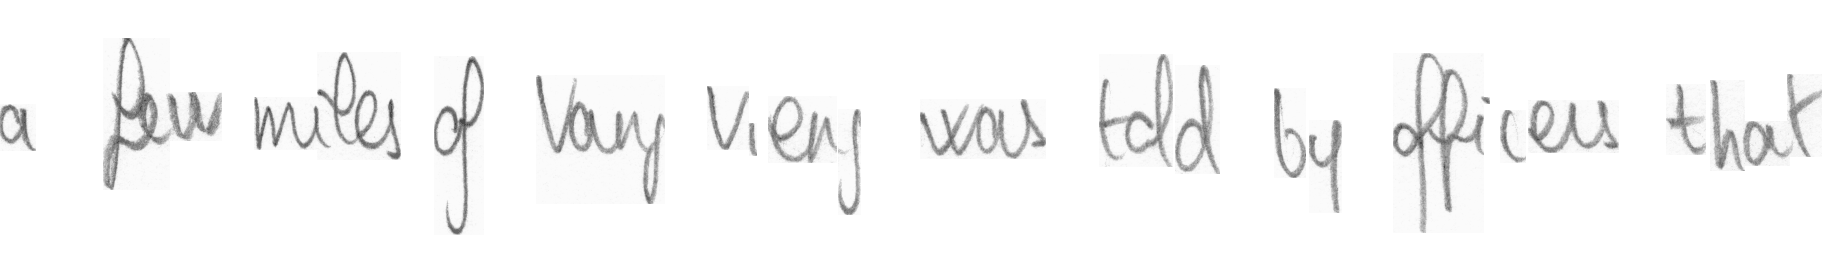 a few miles of Vang Vieng was told by officers that